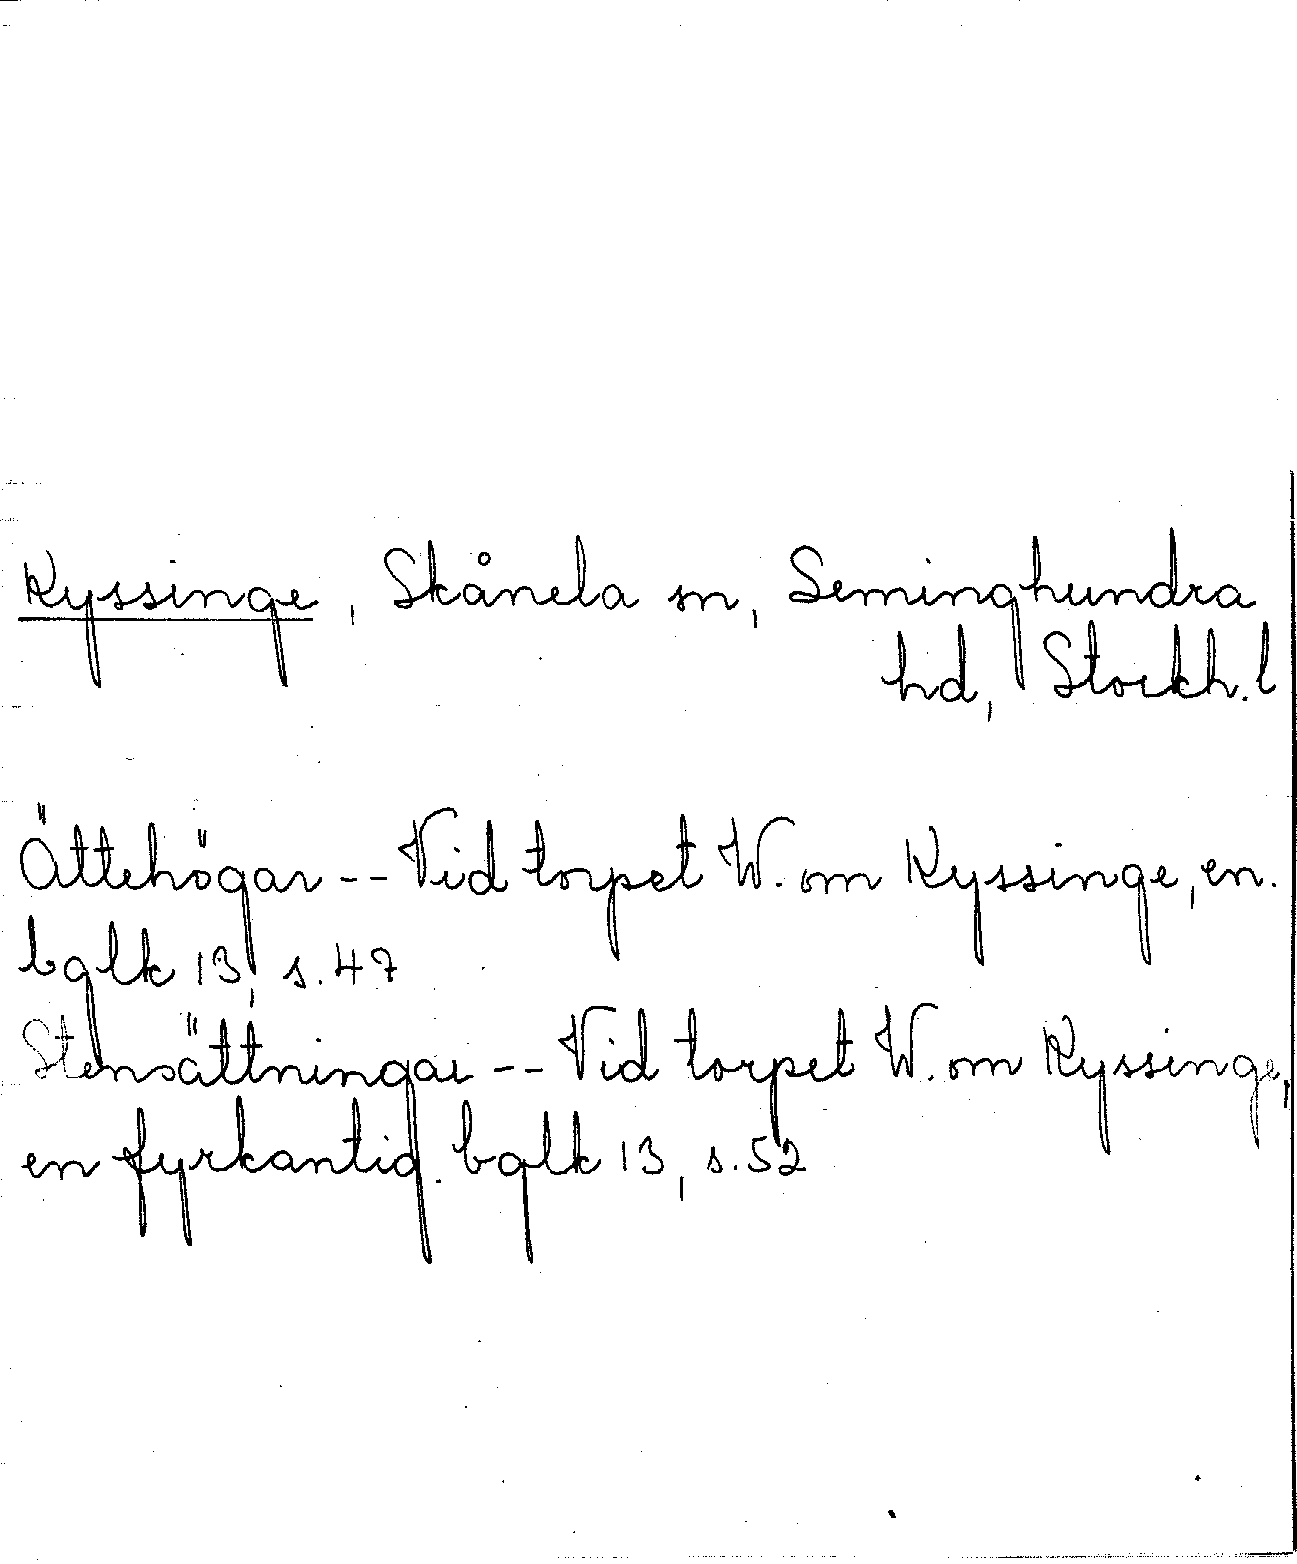 Kyssinge, Skånela sn, Seminghundra
hd, Stockh.l
Ättehögar -- Vid torpet W. om Kyssinge, en.
bglk 13, s. 47
Stensättningar -- Vid torpet W. om Kyssinge,
en fyrkantig. bglk 13, s. 52